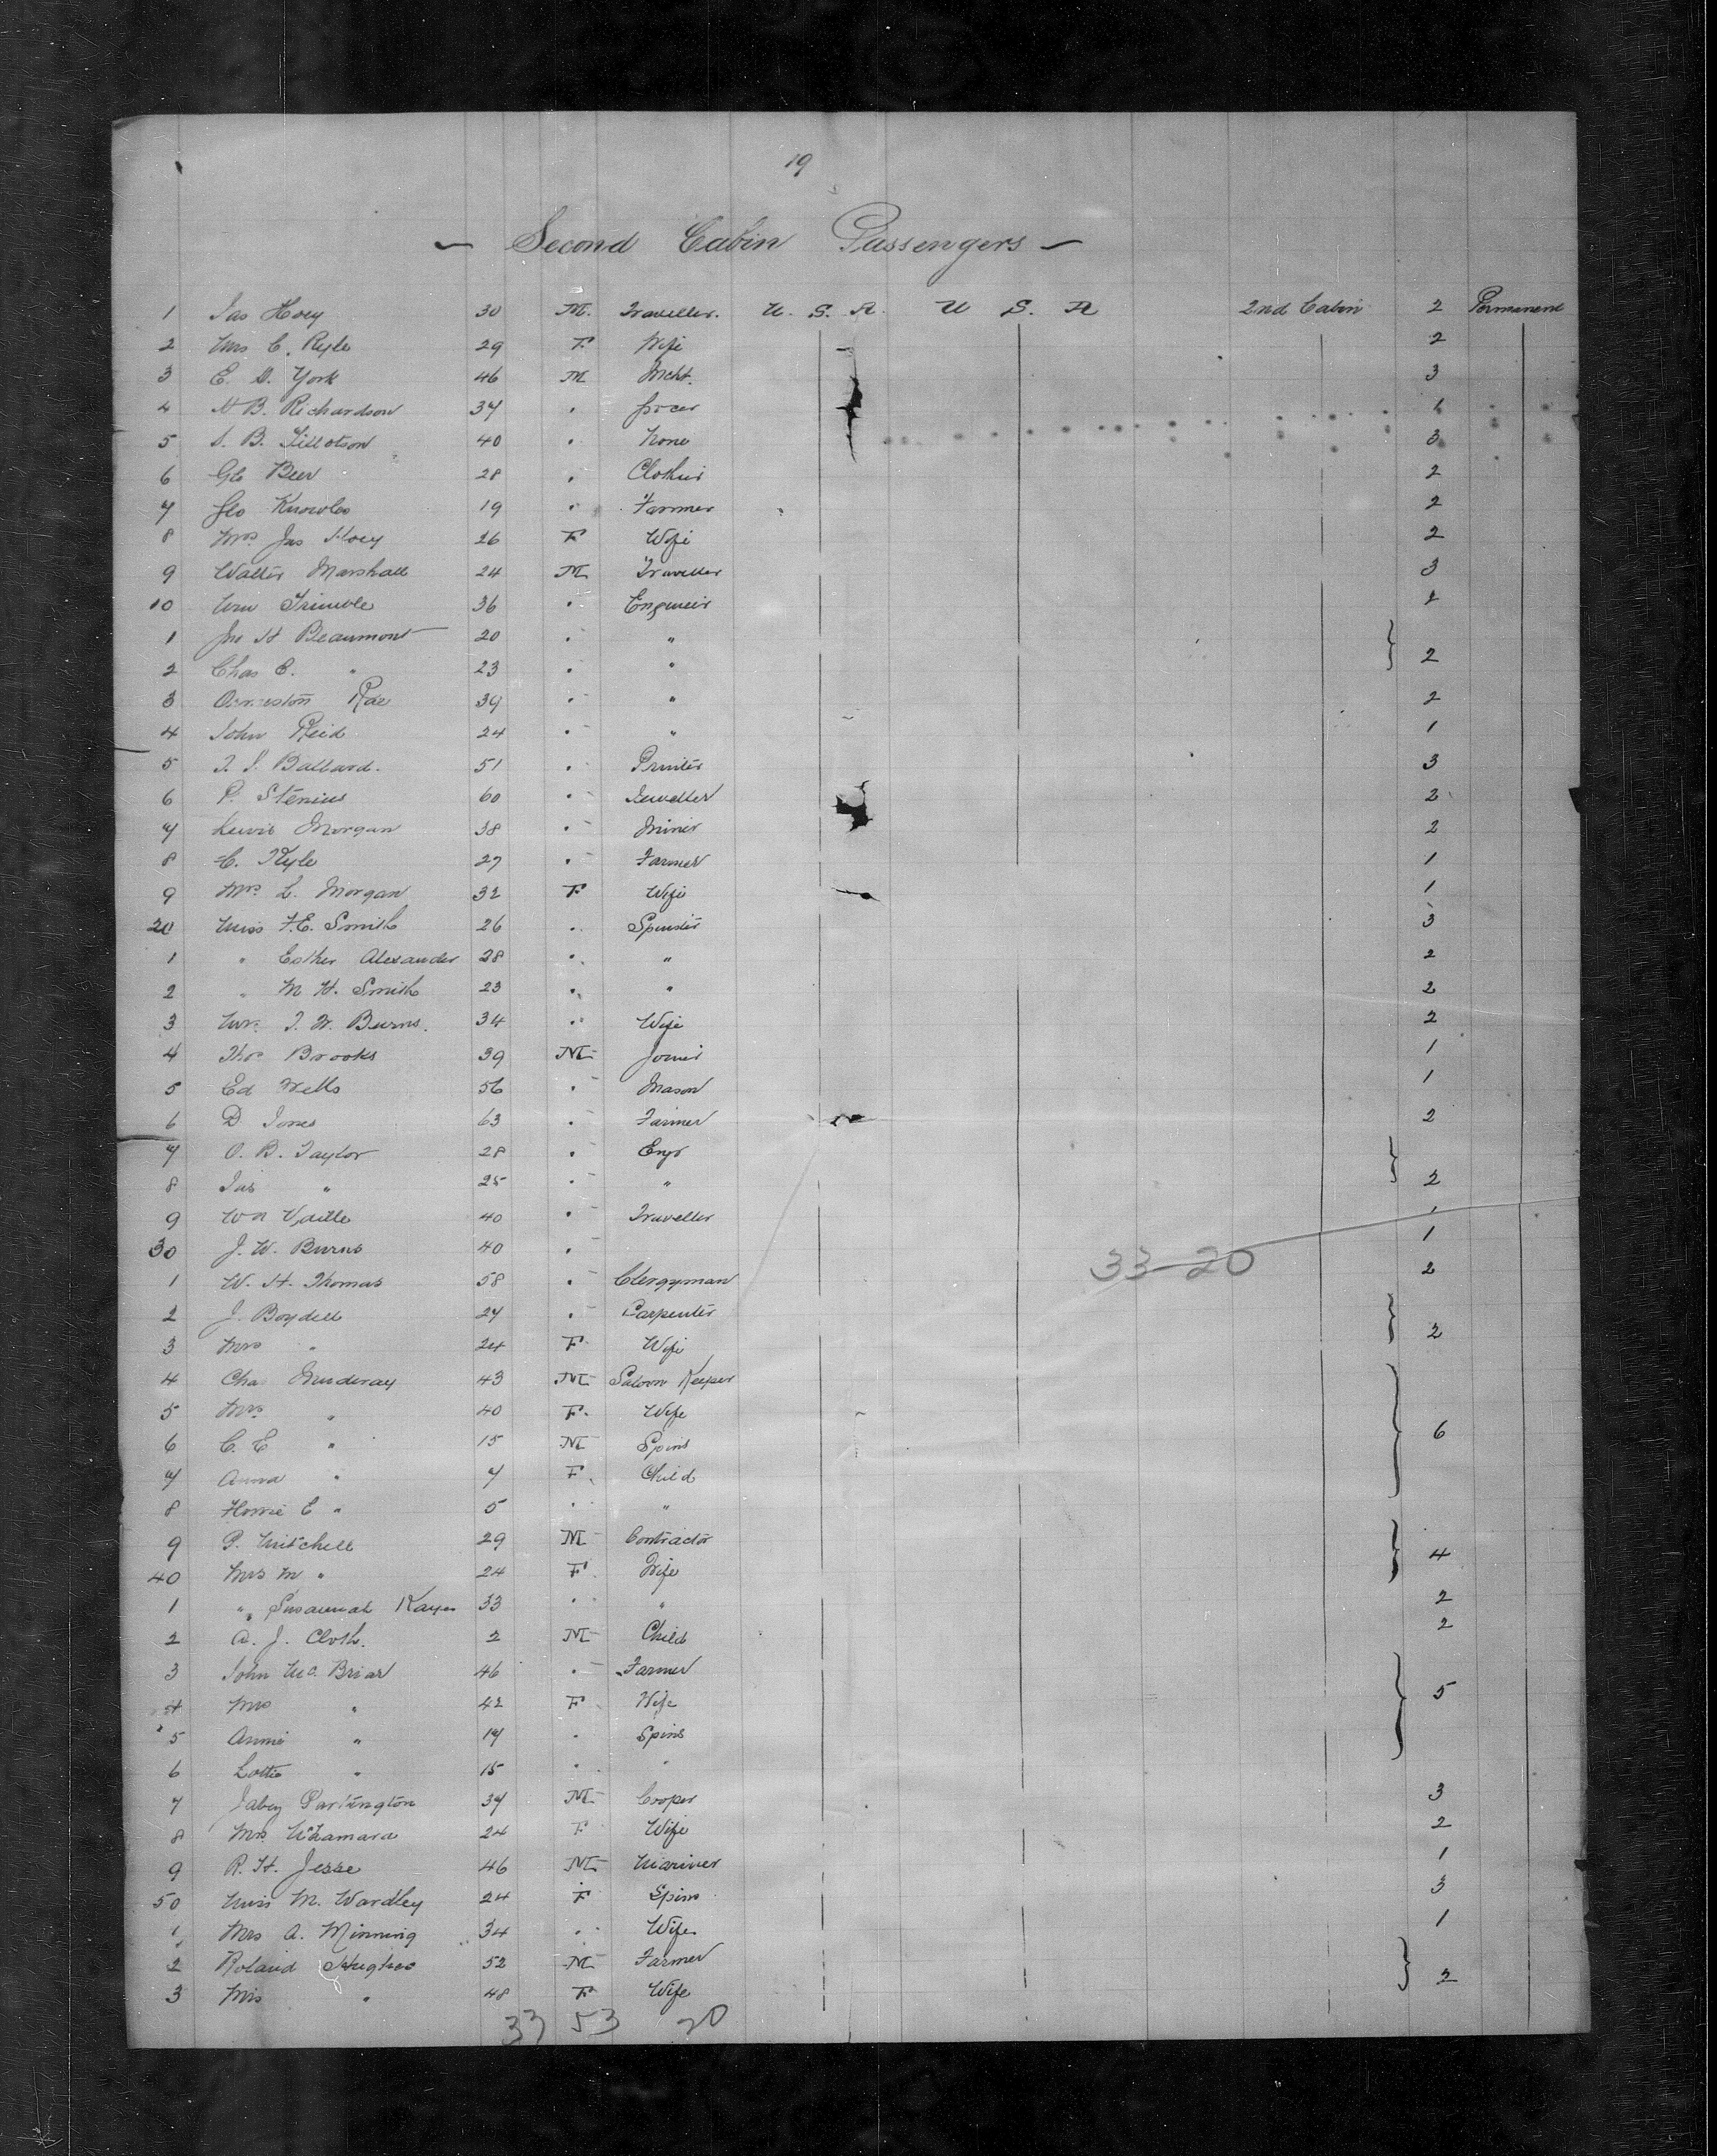 19
— Second Cabin Passengers —
1 Jas Hoey 30 M. Traveller. U. S. A. U S. A 2nd Cabin 2 Permanent
2 Mrs C. Ryle 29 F Wife 2
3 E. D. York 46 M Mcht. 3
4 H B. Richardson 37 " Grocer 1
5 S. B. Tillotson 40 " None 3
6 Geo Beer 28 " Clothier 2
7 Geo Knowles 19 " Farmer 2
8 Mrs Jas Hoey 26 F Wife 2
9 Walter Marshall 24 M Traveller 3
10 Wm Trimble 36 " Engineer 1
1 Jno H Beaumont 20 " "
2 Chas E. " 23 " " } 2
3 Rae 39 " " 2
4 John Reid 24 " " 1
5 T. S. Ballard. 51 " Printer 3
6 P. Stenius 60 " Jeweller 2
7 Lewis Morgan 38 " Miner 2
8 C. Ryle 27 " Farmer 1
9 Mrs L. Morgan 32 F Wife 1
20 Miss F.E. Smith 26 " Spinster 3
1 " Esther Alexander 28 " " 2
2 " M H. Smith 23 " " 2
3 Mrs J. W. Burns. 34 " Wife 2
4 Thos Brooks 39 M Joiner 1
5 Ed Wells 56 " Mason 1
6 D Jones 63 " Farmer 2
7 O. B. Taylor 28 " Engr
8 Jas " 25 " " } 2
9 Wm 40 " Traveller 1
30 J. W. Burns 40 " 1
33-20
1 W. H. Thomas 58 " Clergyman 2
2 J. Boydell 27 " Carpenter
3 Mrs " 24 F Wife } 2
4 Cha 43 M Saloon Keeper
5 Mrs " 40 F. Wife
6 C. E " 15 M Spins } 6
7 Anna " 7 F. Child
8 E " 5 " "
9 P. Mitchell 29 M Contractor
40 Mrs M " 24 F. Wife } 4
1 " Susannah Kayes 33 " " 2
2 A. J. Cloth. 2 M Child 2
3 John Mc Briar 46 " Farmer
4 Mrs " 42 F Wife } 5
5 Annie " 17 " Spins
6 Lottie " 15 " "
7 Jabez Partington 37 M Cooper 3
8 Mrs McNamara 24 F Wife 2
9 R. H. Jesse 46 M Mariner 1
50 Miss M. Wardley 24 F Spins 3
1 Mrs A. Minning 34 " Wife 1
2 Roland Hughes 52 M Farmer
3 Mrs " 48 F Wife } 2
33 53 20